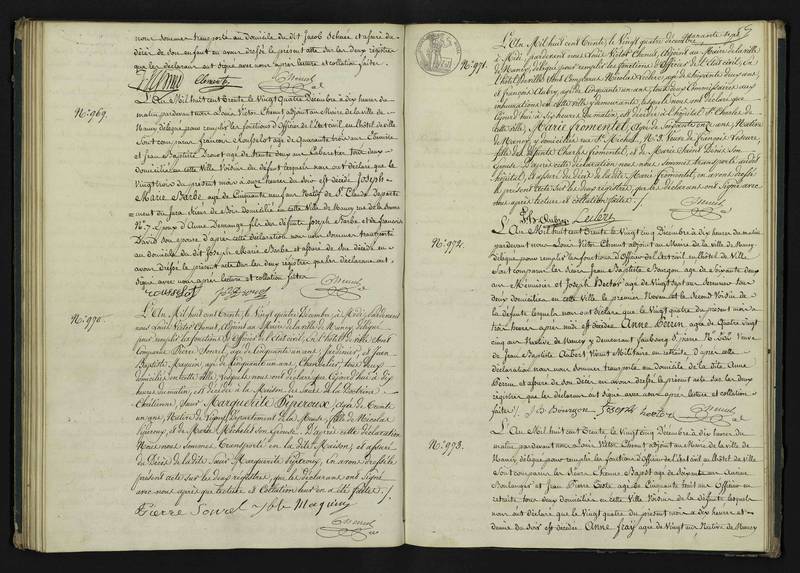 nous sommes transporté au domicile du dit Jacob Schaer et assuré du
décès de son enfant en avons dressé le présent acte sur les deux registres
que les déclarant ont signé avec nous après lecture et collation faites.
Clement Chenut
N.º 969.
L'An Mil huit Cent Trente, le Vingt quatre Décembre à dix heures du
matin pardevant nous Louis Victor Chenut adjoint au Maire de la ville de
Nancy délégué pour remplir les fonctions d'Officier de l'Etat civil en l'hôtel de ville
Sont comparus François Rousselot agé de Quarante trois ans
et Jean Baptiste Drouot agé de trente deux ans Cabaretier tous deux
domiciliés en cette Ville Voisins du défunt lesquels nous ont déclaré que le
Vingt trois du présent mois à onze heures du soir est décédé Joseph
Marie Barbe agé de Cinquante neuf ans Natif de St Claude departe
ment du Jura domicilié en cette Ville de Nancy rue
N.º 7. Epoux d'Anne Demange fils des défunts Joseph Barbe et de françoise
David son epouse d'après cette déclaration nous nous sommes transporté
au domicile du dit Joseph Marie Barbe et assuré de son décès en
avons dressé le présent acte sur les deux registres que les déclarans ont
signé avec nous après lecture et collation faites
Rousselot JB Drouot Chenut
N.º 970.
L'An Mil huit Cent Trente, le Vingt quatre Décembre, à Midi, Pardevant
nous Louis Victor Chenut, Adjoint au Maire de la ville de Nancy délégué
pour remplir les fonctions d'Officier de l'Etat civil, en l'hôtel de ville Sont
Comparus Pierre Sourel, agé de Cinquante un ans, Jardinier, et Jean
Baptiste Maquin, agé de Cinquante ans, Chandelier, tous deux
domiciliés en cette Ville, lesquels nous ont déclaré que Aujourd'hui à dix
heures du matin, est décédée à la Maison de la Doctrine
Chrétienne, Sœur Marguerite Piperoux, agée de Trente
un ans, Native de Ligny, Département de la Meuse, fille de Nicolas
Piperoux, et de Marie Michelet son Epouse. D'après cette déclaration
Nous nous sommes Transporté en la dite Maison, et assuré
du Décès de la dite Sœur Marguerite Piperoux, en avons dressé le
présent acte sur les deux registres, que les déclarans ont Signé
avec nous après que lecture et Collation leur en a été faites. /.
Pierre Sourel JBte Maquin
Chenut
quarante sept
N.º 971.
L'An Mil huit Cent Trente, le Vingt quatre Décembre,
à Midi, pardevant nous Louis Victor Chenut, Adjoint au Maire de la ville
de Nancy, délégué pour remplir les fonctions d'Officier de l'Etat civil, en
l'hôtel de ville Sont Comparus Nicolas Leclerc, agé de Soixante deux ans,
et françois Aubry, agé de Cinquante un ans, tous deux Commissaires aux
inhumations en cette ville y demeurants, lesquels nous ont déclaré que
Aujourd'hui à Six heures du matin, est décédée à l'hôpital St Charles de
cette ville, Marie fromentel, agée de Soixante onze ans, Native
de Nancy, y domiciliée rue St Michel, N.º 3. Veuve de françois
fille des défunts Charles fromentel, et de Marie Saint Denis son
Epouse. D'après cette déclaration nous nous sommes transporté audit
hôpital, et assuré du Décès de la dite Marie fromentel, en avons dressé
le présent Acte sur les deux registres, que les déclarans ont Signé avec
nous après lecture et Collation faites. /.
Chenut
Aubry Leclerc
N.º 972.
L'An Mil huit Cent Trente, le Vingt cinq Décembre à dix heures du matin
pardevant nous Louis Victor Chenut adjoint au Maire de la ville de Nancy
délégué pour remplir les fonctions d'Officier de l'Etat civil en l'hôtel de Ville
Sont comparus les Sieurs Jean Baptiste Bourgon agé de Soixante deux
ans Menuisier et Joseph Hector agé de Vingt sept ans Serrurier tous
deux domiciliés en cette Ville le premier Neveu et le Second Voisin de
la défunte lesquels nous ont déclaré que le Vingt quatre du présent mois à
trois heures après midi est décédée Anne Perrin agée de Quatre Vingt
cinq ans Native de Nancy y demeurant faubourg St pierre Veuve
de Jean Baptiste Aubert Vivait Militaire en retraite, d'après cette
déclaration nous nous sommes transporté au domicile de la dite Anne
Perrin et assuré de son décès en avons dressé le présent acte sur les deux
registres que les déclarans ont signé avec nous après lecture et collation
faites /. J B Bourgon. Joseph hector Chenut
N.º 973.
L'An Mil huit Cent Trente, le Vingt cinq Décembre à dix heures du
matin pardevant nous Louis Victor Chenut adjoint au Maire de la ville de
Nancy délégué pour remplir les fonctions d'Officier de l'Etat civil en l'hôtel de ville
Sont comparus les Sieurs Etienne Bajot agé de Soixante ans Ancien
Boulanger et Jean Pierre Coste agé de Cinquante huit ans Officier en
retraite tous deux domiciliés en cette Ville Voisins de la défunte lesquels
nous ont déclaré que le Vingt quatre du présent mois à dix heures et
demie du soir est décédée Anne agée de Vingt ans Native de Nancy